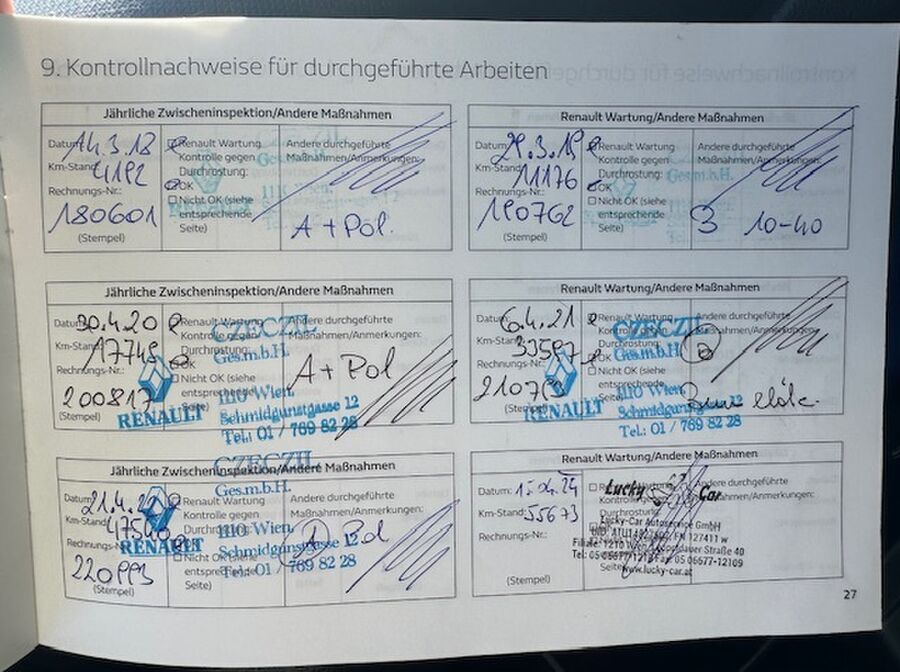 9. Kontrollnachweise für durchgeführte Arbeiten
Jährliche Zwischeninspektion/Andere Maßnahmen
Datum: 14.3.18
Km-Stand: 4192
Rechnungs-Nr.:
180601
(Stempel)
Renault Wartung
Kontrolle gegen
Durchrostung:
OK
Nicht OK (siehe
entsprechende
Seite)
Andere durchgeführte
Maßnahmen/Anmerkungen:
A + Pol.
Ges.m.b.H.
1110 Wien,
RENAULT
Renault Wartung/Andere Maßnahmen
Datum: 29.3.19
Km-Stand: 11176
Rechnungs-Nr.:
190762
(Stempel)
Renault Wartung
Kontrolle gegen
Durchrostung:
OK
Nicht OK (siehe
entsprechende
Seite)
Andere durchgeführte
Maßnahmen/Anmerkungen:
10-40
Ges.m.b.H.
Jährliche Zwischeninspektion/Andere Maßnahmen
Datum: 30.4.20
Km-Stand: 17748
Rechnungs-Nr.:
200817
Renault Wartung
Kontrolle gegen
Durchrostung:
OK
Nicht OK (siehe
entsprechende
Seite)
Andere durchgeführte
Maßnahmen/Anmerkungen:
A + Pol
CZECZIL
Ges.m.b.H.
1110 Wien,
Schmidgunstgasse 12
Tel.: 01 / 769 82 28
RENAULT
Renault Wartung/Andere Maßnahmen
Datum: 6.4.21
Km-Stand: 33587
Rechnungs-Nr.:
(Stempel)
Renault Wartung
Kontrolle gegen
Durchrostung:
OK
Nicht OK (siehe
entsprechende
Seite)
Andere durchgeführte
Maßnahmen/Anmerkungen:
CZECZIL
Ges.m.b.H.
1110 Wien,
Schmidgunstgasse 12
Tel.: 01 / 769 82 28
RENAULT
Jährliche Zwischeninspektion/Andere Maßnahmen
Datum: 21.4.
Km-Stand:
220993
(Stempel)
Renault Wartung
Kontrolle gegen
Durchrostung:
Nicht OK (siehe
entsprechende
Seite)
Andere durchgeführte
Maßnahmen/Anmerkungen:
A Pol
CZECZIL
Ges.m.b.H.
1110 Wien,
Schmidgunstgasse 12
Tel.: 01 / 769 82 28
RENAULT
Renault Wartung/Andere Maßnahmen
Datum: 15.04.24
Km-Stand: 55673
Rechnungs-Nr.:
(Stempel)
Renault Wartung
Andere durchgeführte
Maßnahmen/Anmerkungen:
Lucky Car
Lucky-Car Autoservice GmbH
FN 127411 w
1210 Wien
Straße 40
Fax 05 06677-12109
www.lucky-car.at
27